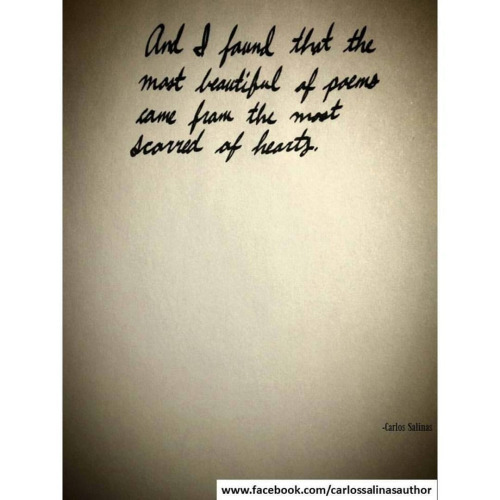 And I found that the
most beautiful of poems
came from the most
scarred of hearts.
-Carlos Salinas
www.facebook.com/carlossalinasauthor